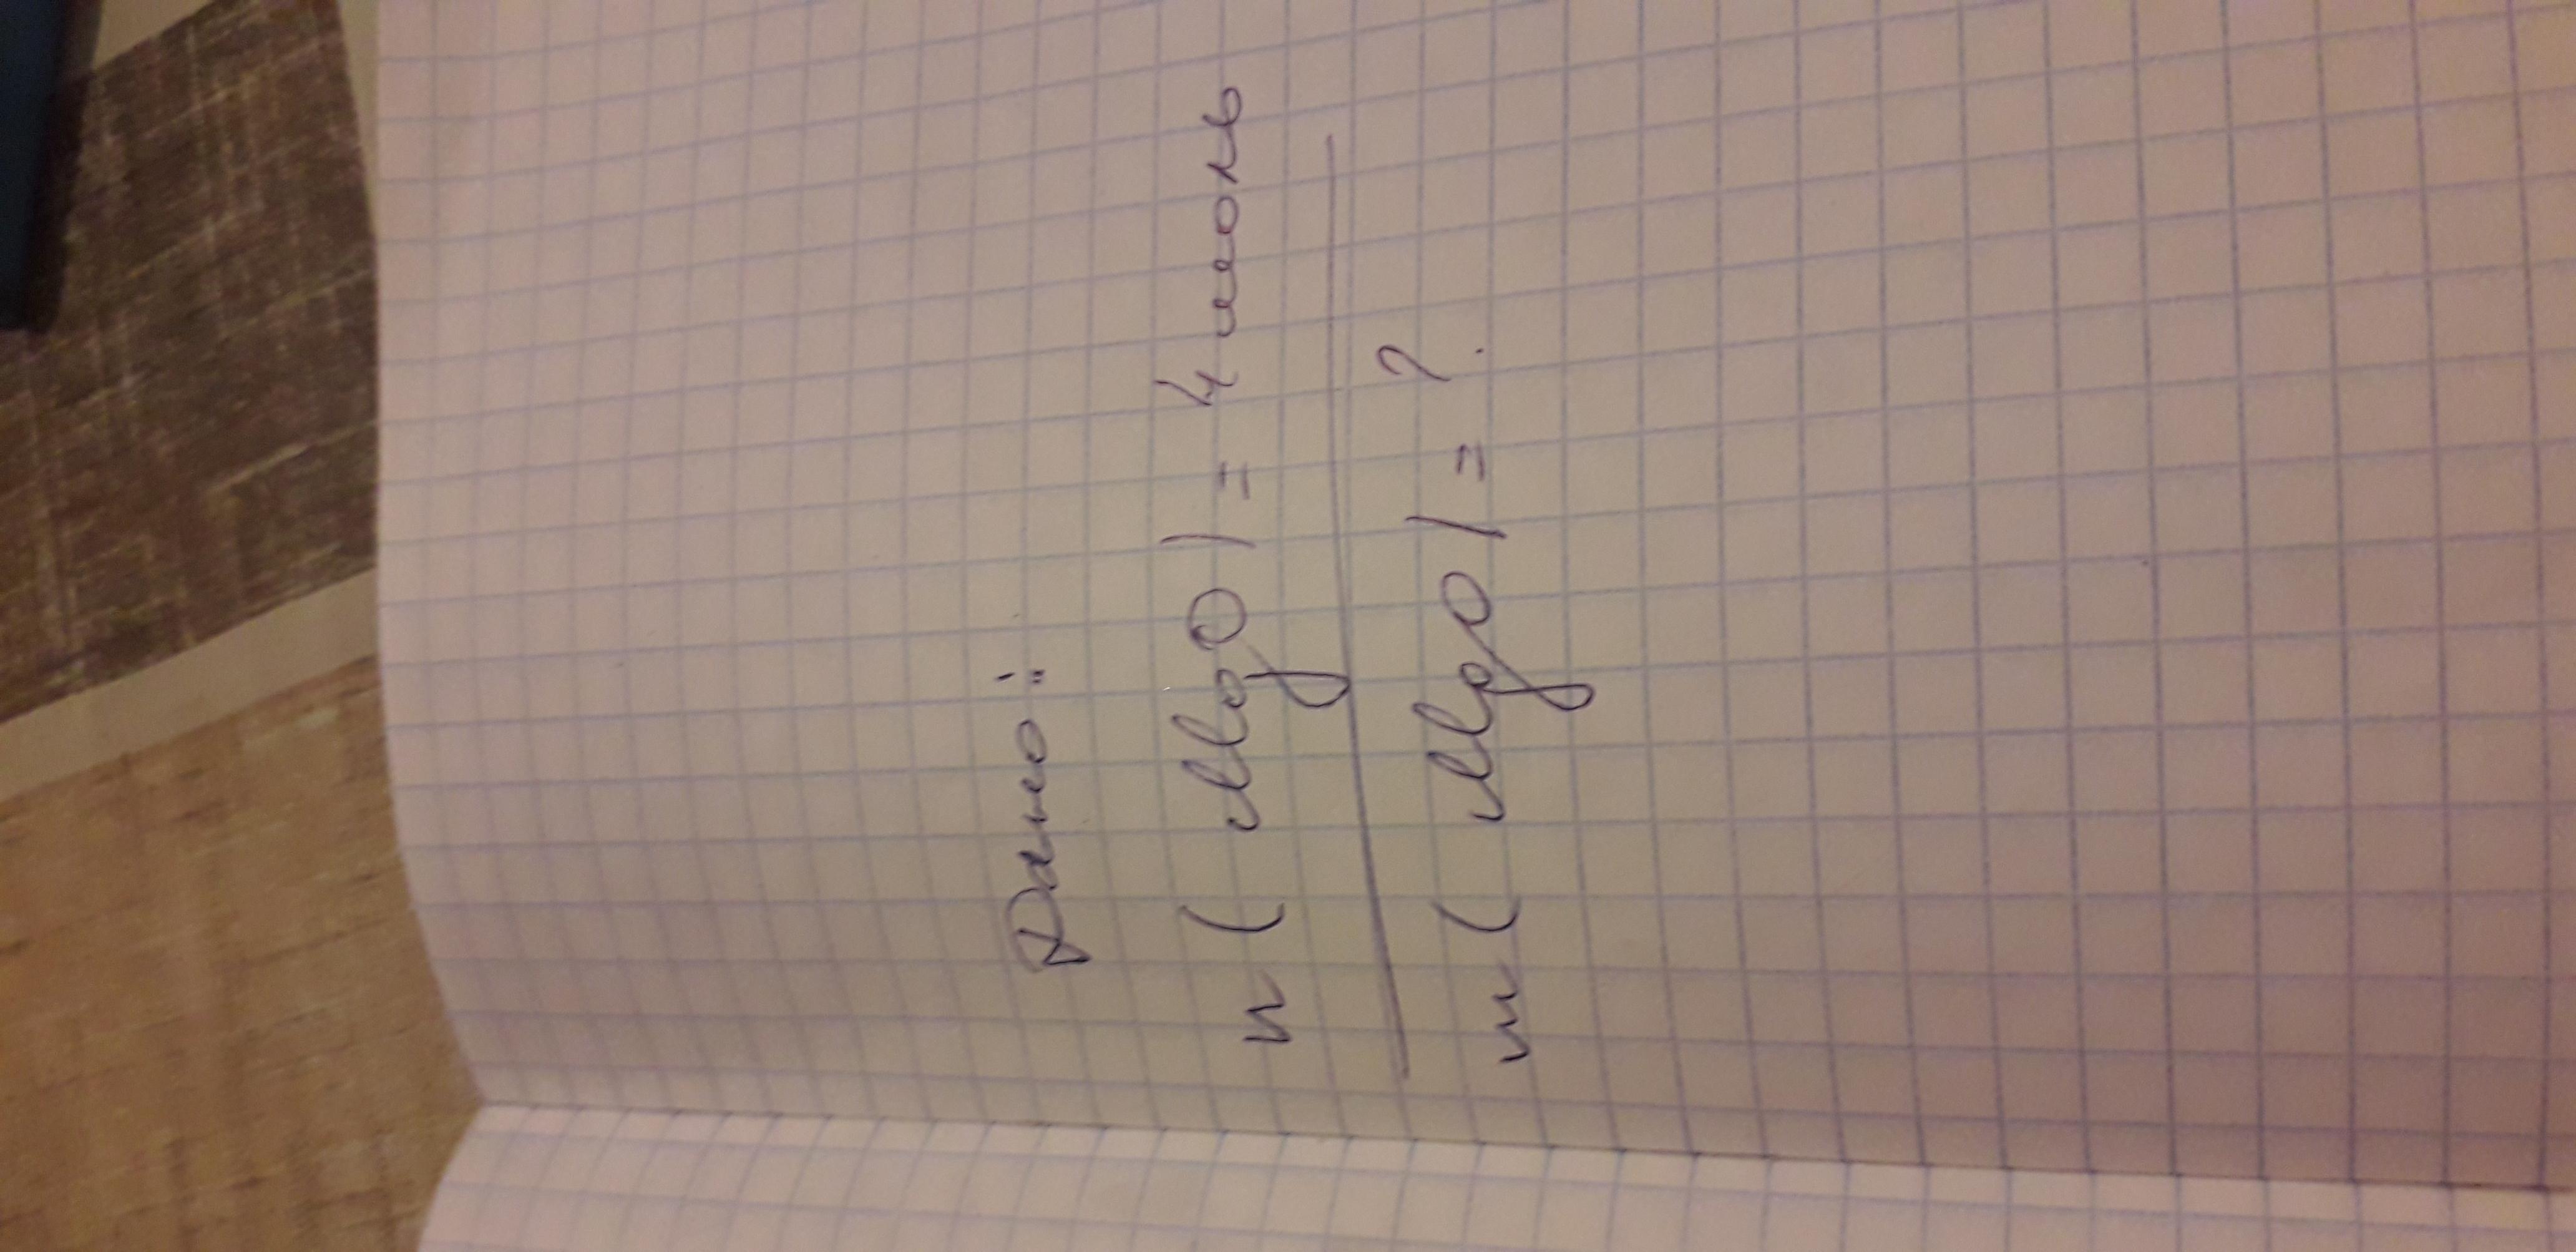 Дано:
n ( MgO ) = 4 моль
m ( MgO ) = ?